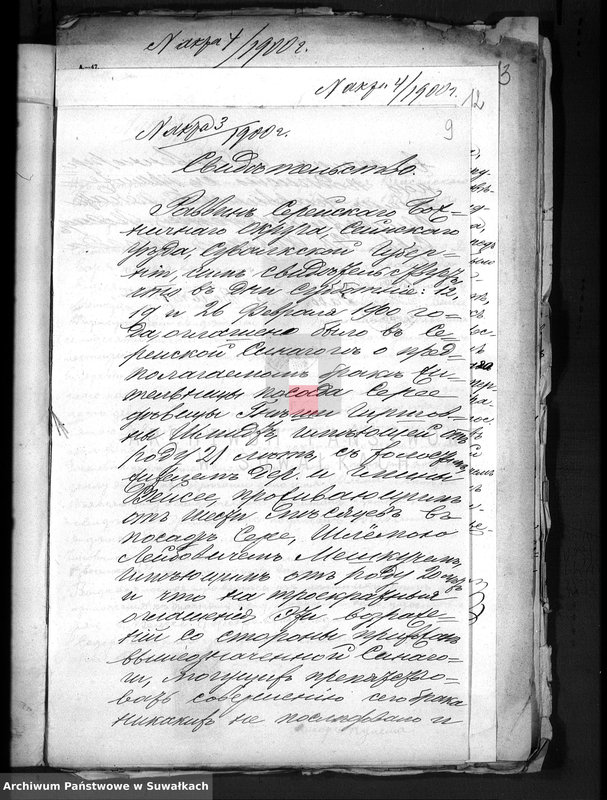 N акта 4/1900 г.
N акта 4/1900 г.
13
12
N акта 3/1900 г.
9
Свидѣтельство.
Раввинъ Серейскаго Бож-
ничнаго Округа, Сейнскаго
уѣзда, Сувалкской Губер-
ніи, симъ свидѣтельствуетъ
что въ дни субботніе: 12,
19 и 26 Февраля 1900 го-
да, оглашено было въ Се-
рейской Синагогѣ о пред-
полагаемомъ бракѣ жи-
тельницы посада Сереє
дѣвицы
ны имѣющей отъ
роду 21 лѣтъ, съ холос-
дер. и гмины
Вейсее, проживающимъ
отъ шести мѣсяцевъ въ
посадѣ Сереє, Шлёмою
Лейбовичемъ
имѣющимъ отъ роду 20 лѣтъ
и что на троекратныя
оглашенія эти возраже-
ній со стороны прихожанъ
вышеозначенной Синаго-
ги, могущихъ препятство-
вать совершенію сего брака
никакихъ не послѣдовало и
Archiwum Państwowe w Suwałkach